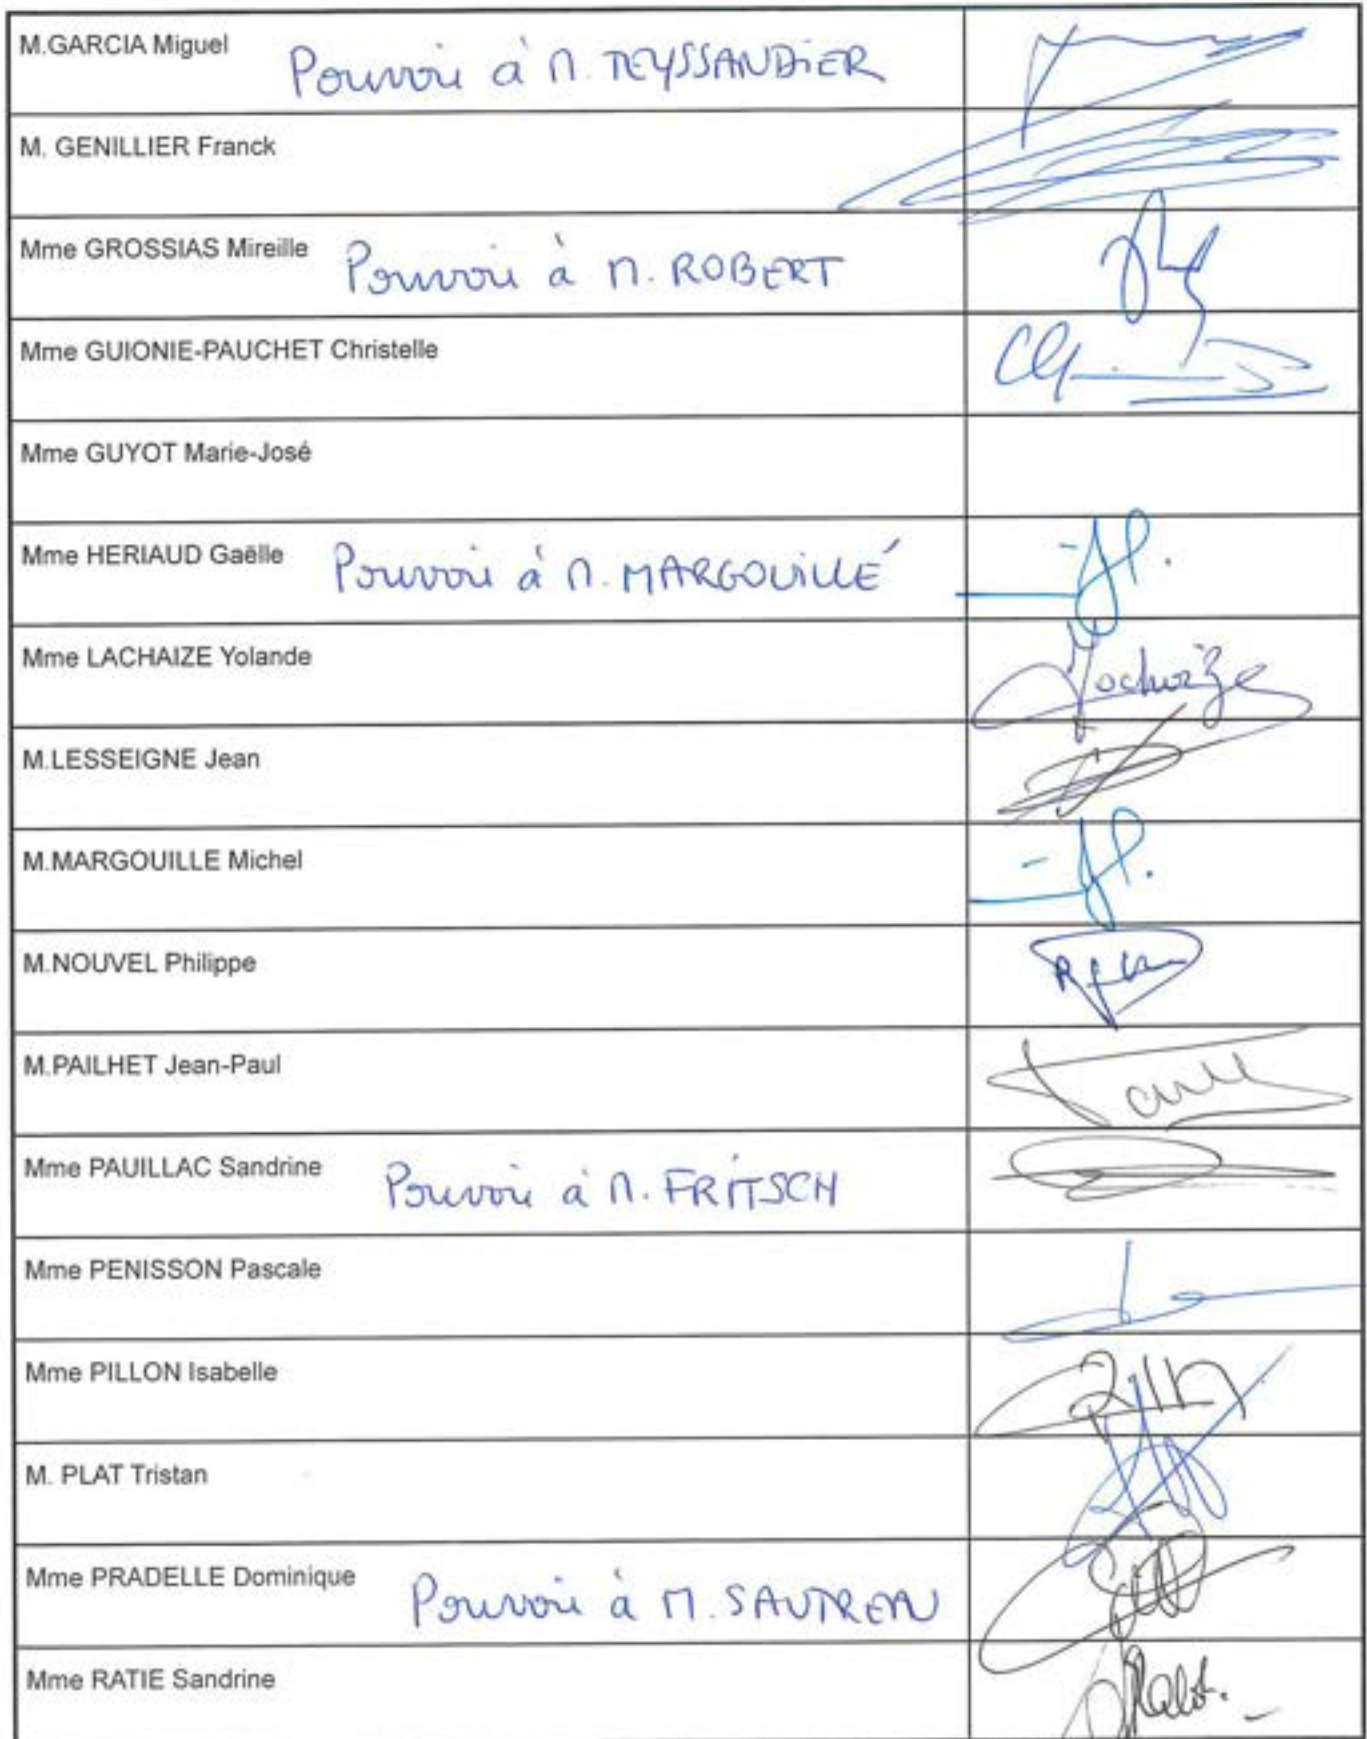 M.GARCIA Miguel Pouvoir à M. TEYSSANDIER
M. GENILLIER Franck
Mme GROSSIAS Mireille Pouvoir à M. ROBERT
Mme GUIONIE-PAUCHET Christelle
Mme GUYOT Marie-José
Mme HERIAUD Gaëlle Pouvoir à M. MARGOUILLÉ
Mme LACHAIZE Yolande
M.LESSEIGNE Jean
M.MARGOUILLE Michel
M.NOUVEL Philippe
M.PAILHET Jean-Paul
Mme PAUILLAC Sandrine Pouvoir à M. FRITSCH
Mme PENISSON Pascale
Mme PILLON Isabelle
M. PLAT Tristan
Mme PRADELLE Dominique Pouvoir à M. SAUTREAU
Mme RATIE Sandrine